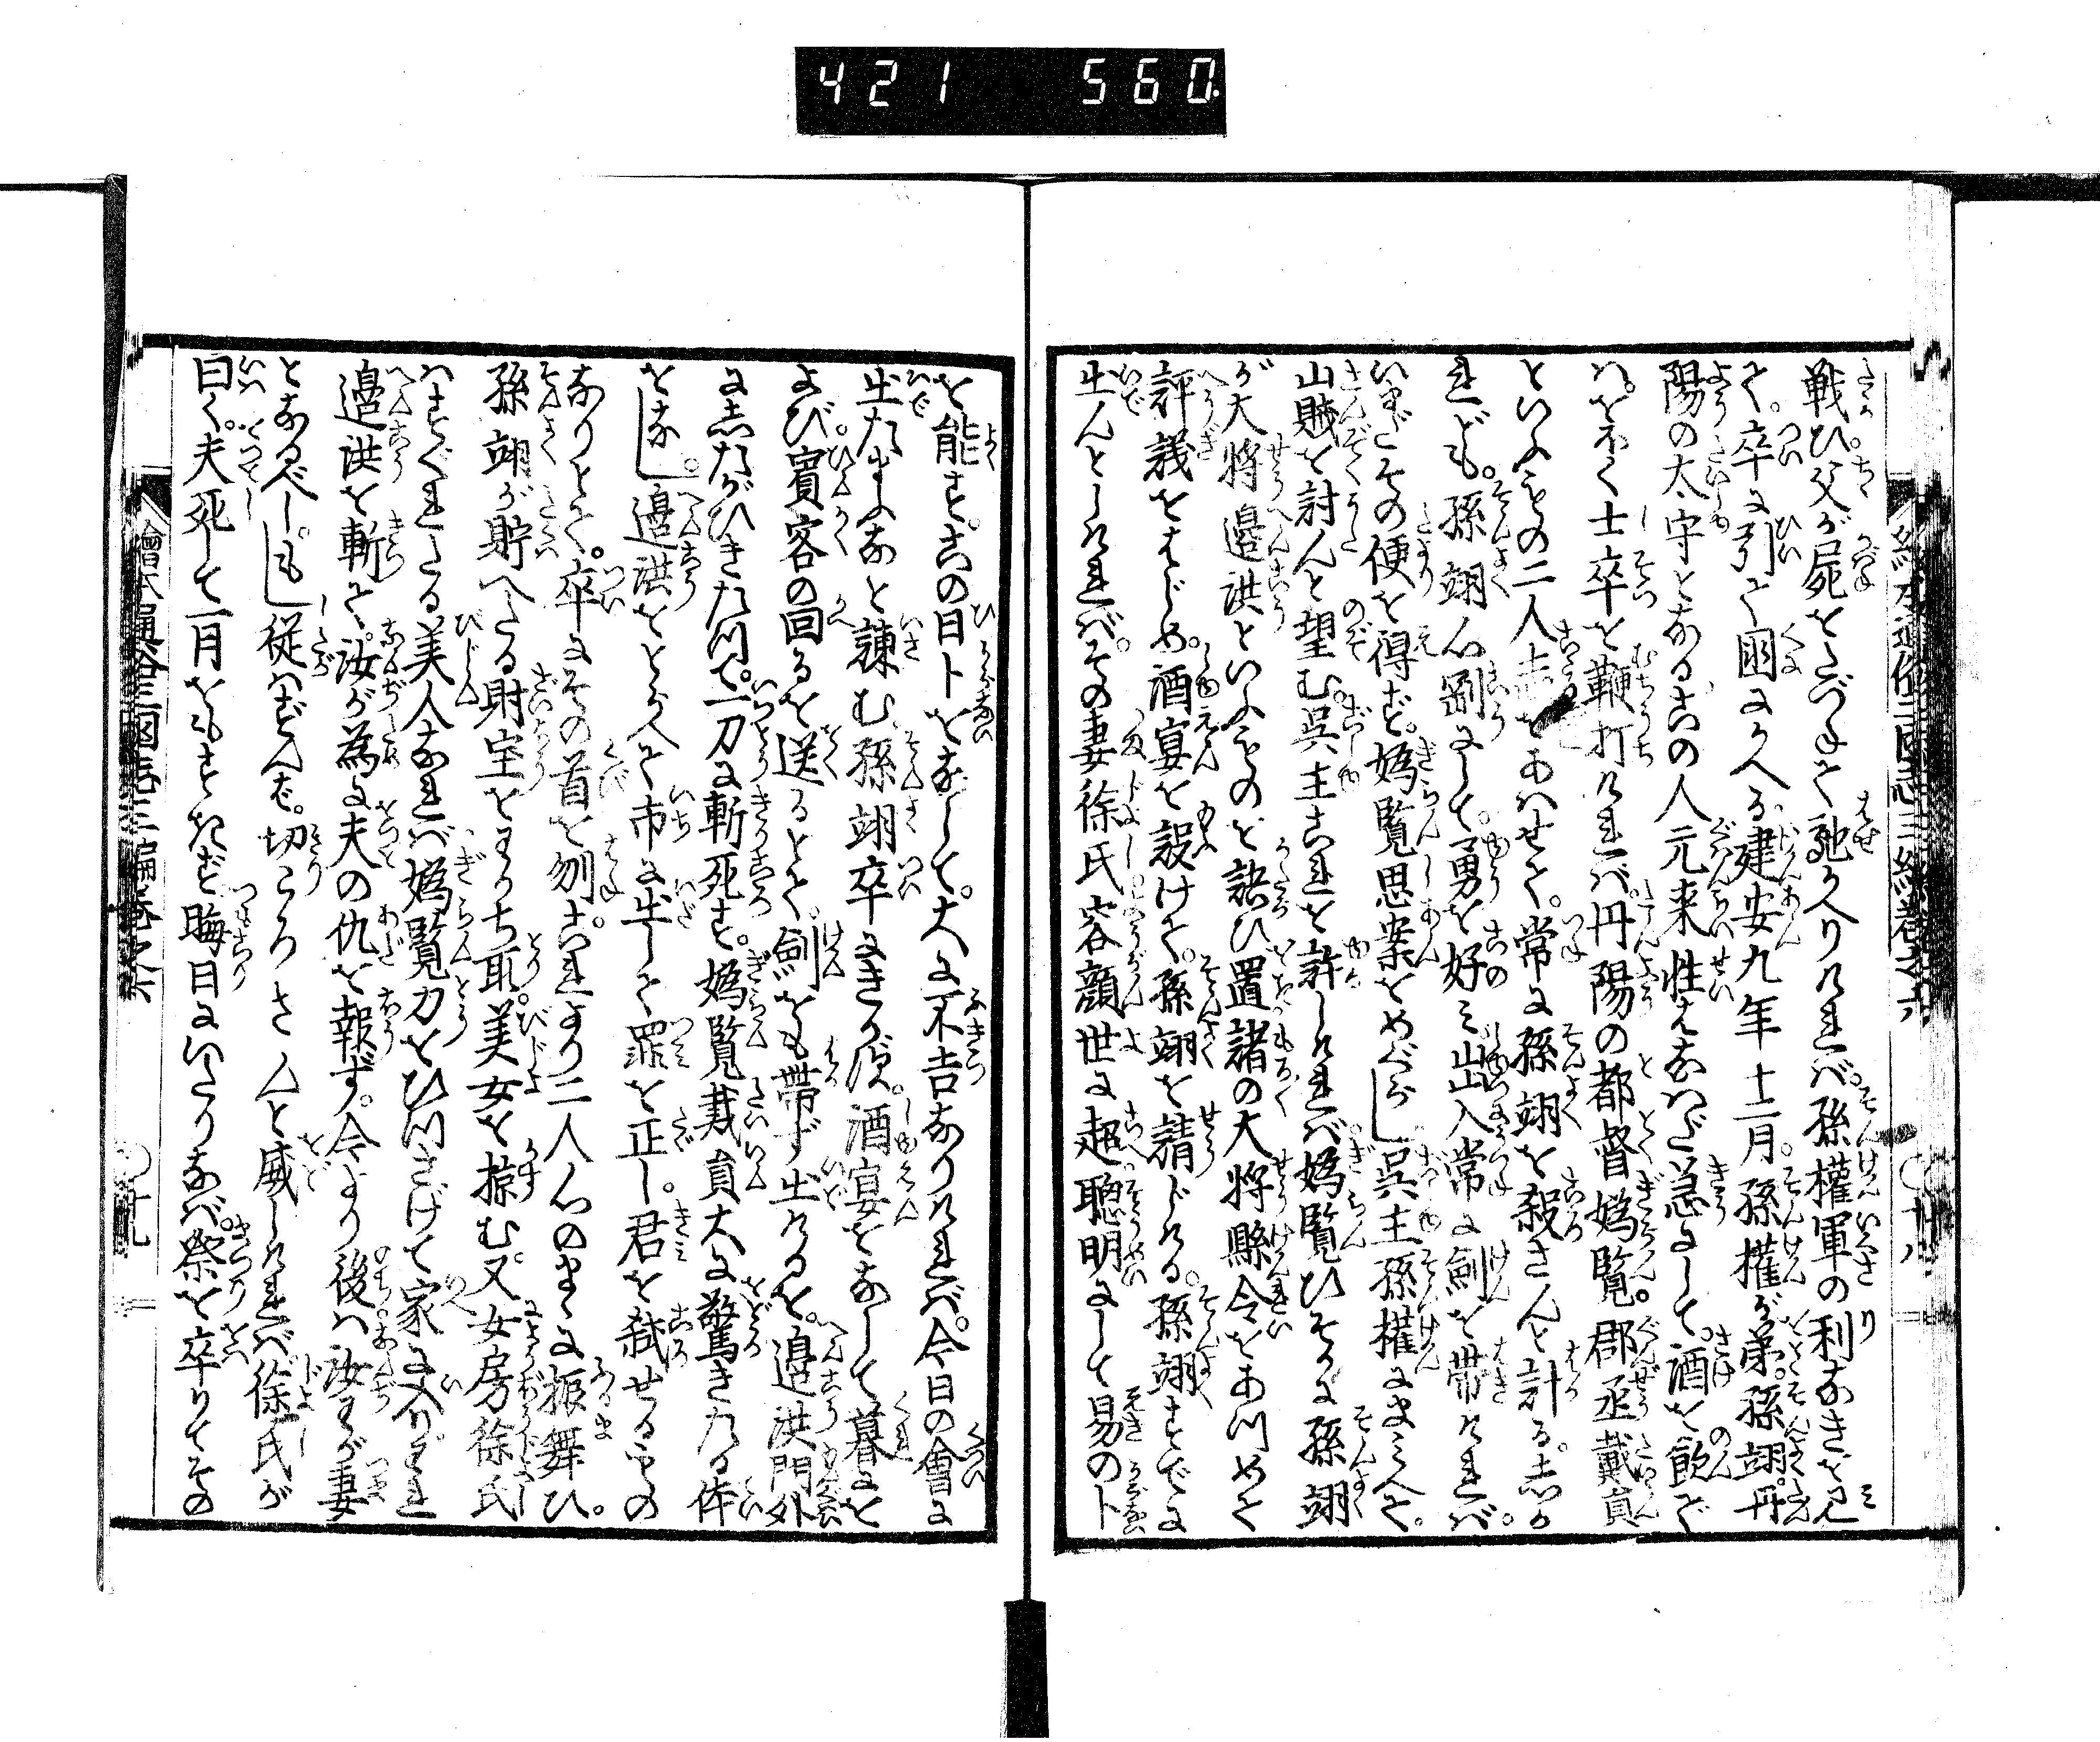 421 560
戦ひ。父が屍をたづねて馳かへりければ。孫權軍の利なきを見
て。卒に引て囯にかへる。建安九年十二月。孫權が弟。孫翊。丹
陽の太守となる。この人元来性はなはだ急にして。酒を飲で
は。をほく士卒を鞭打ければ。丹陽の都督嬀覧。郡丞戴員
といふものの二人志をあはせて。常に孫翊を殺さんと計る。しか
れども。孫翊心剛にして。勇を好み出入常に劍を帯ければ。
いまだその便を得ず。嬀覧思案をめぐらし呉主孫權にまみへて。
山賊を討んと望む。呉主これを許しければ嬀覧ひそかに孫翊
が大将邉洪といふものを誘ひ置諸の大将縣令をあつめて
評議をはじめ。酒宴を設けて。孫翊を請じける。孫翊すでに
出んとしければ。その妻徐氏容顔世に超。聰明にして易のト
を能す。この日トをなして。大に不吉なりければ。今日の會に
出たまふなと諌む孫翊卒にきかず。酒宴をなして暮に
よび。賓客の回るを送るとて。劍をも帯ず出けるを。邉洪門外
にしたがひきたつて。一刀に斬死す。嬀覧戴員大に驚きたる体
をなし。邉洪をとらへて市に出して罪を正し。君を弑せるもの
なりとて。卒にその首を刎。これより二人心のまゝに振舞ひ。
孫翊が貯へたる財宝をわかち取。美女を掠む。又女房徐氏
はすぐれたる美人なれば嬀覧力をひつさげて家に入りわれ
邉洪を斬て。汝が為に夫の仇を報ず。今より後は汝わが妻
となるべし。もし従はずんば。切ころさんと威しければ徐氏が
曰く。夫死して一月をもすぎず晦日にいたりなば。祭を卒りてその